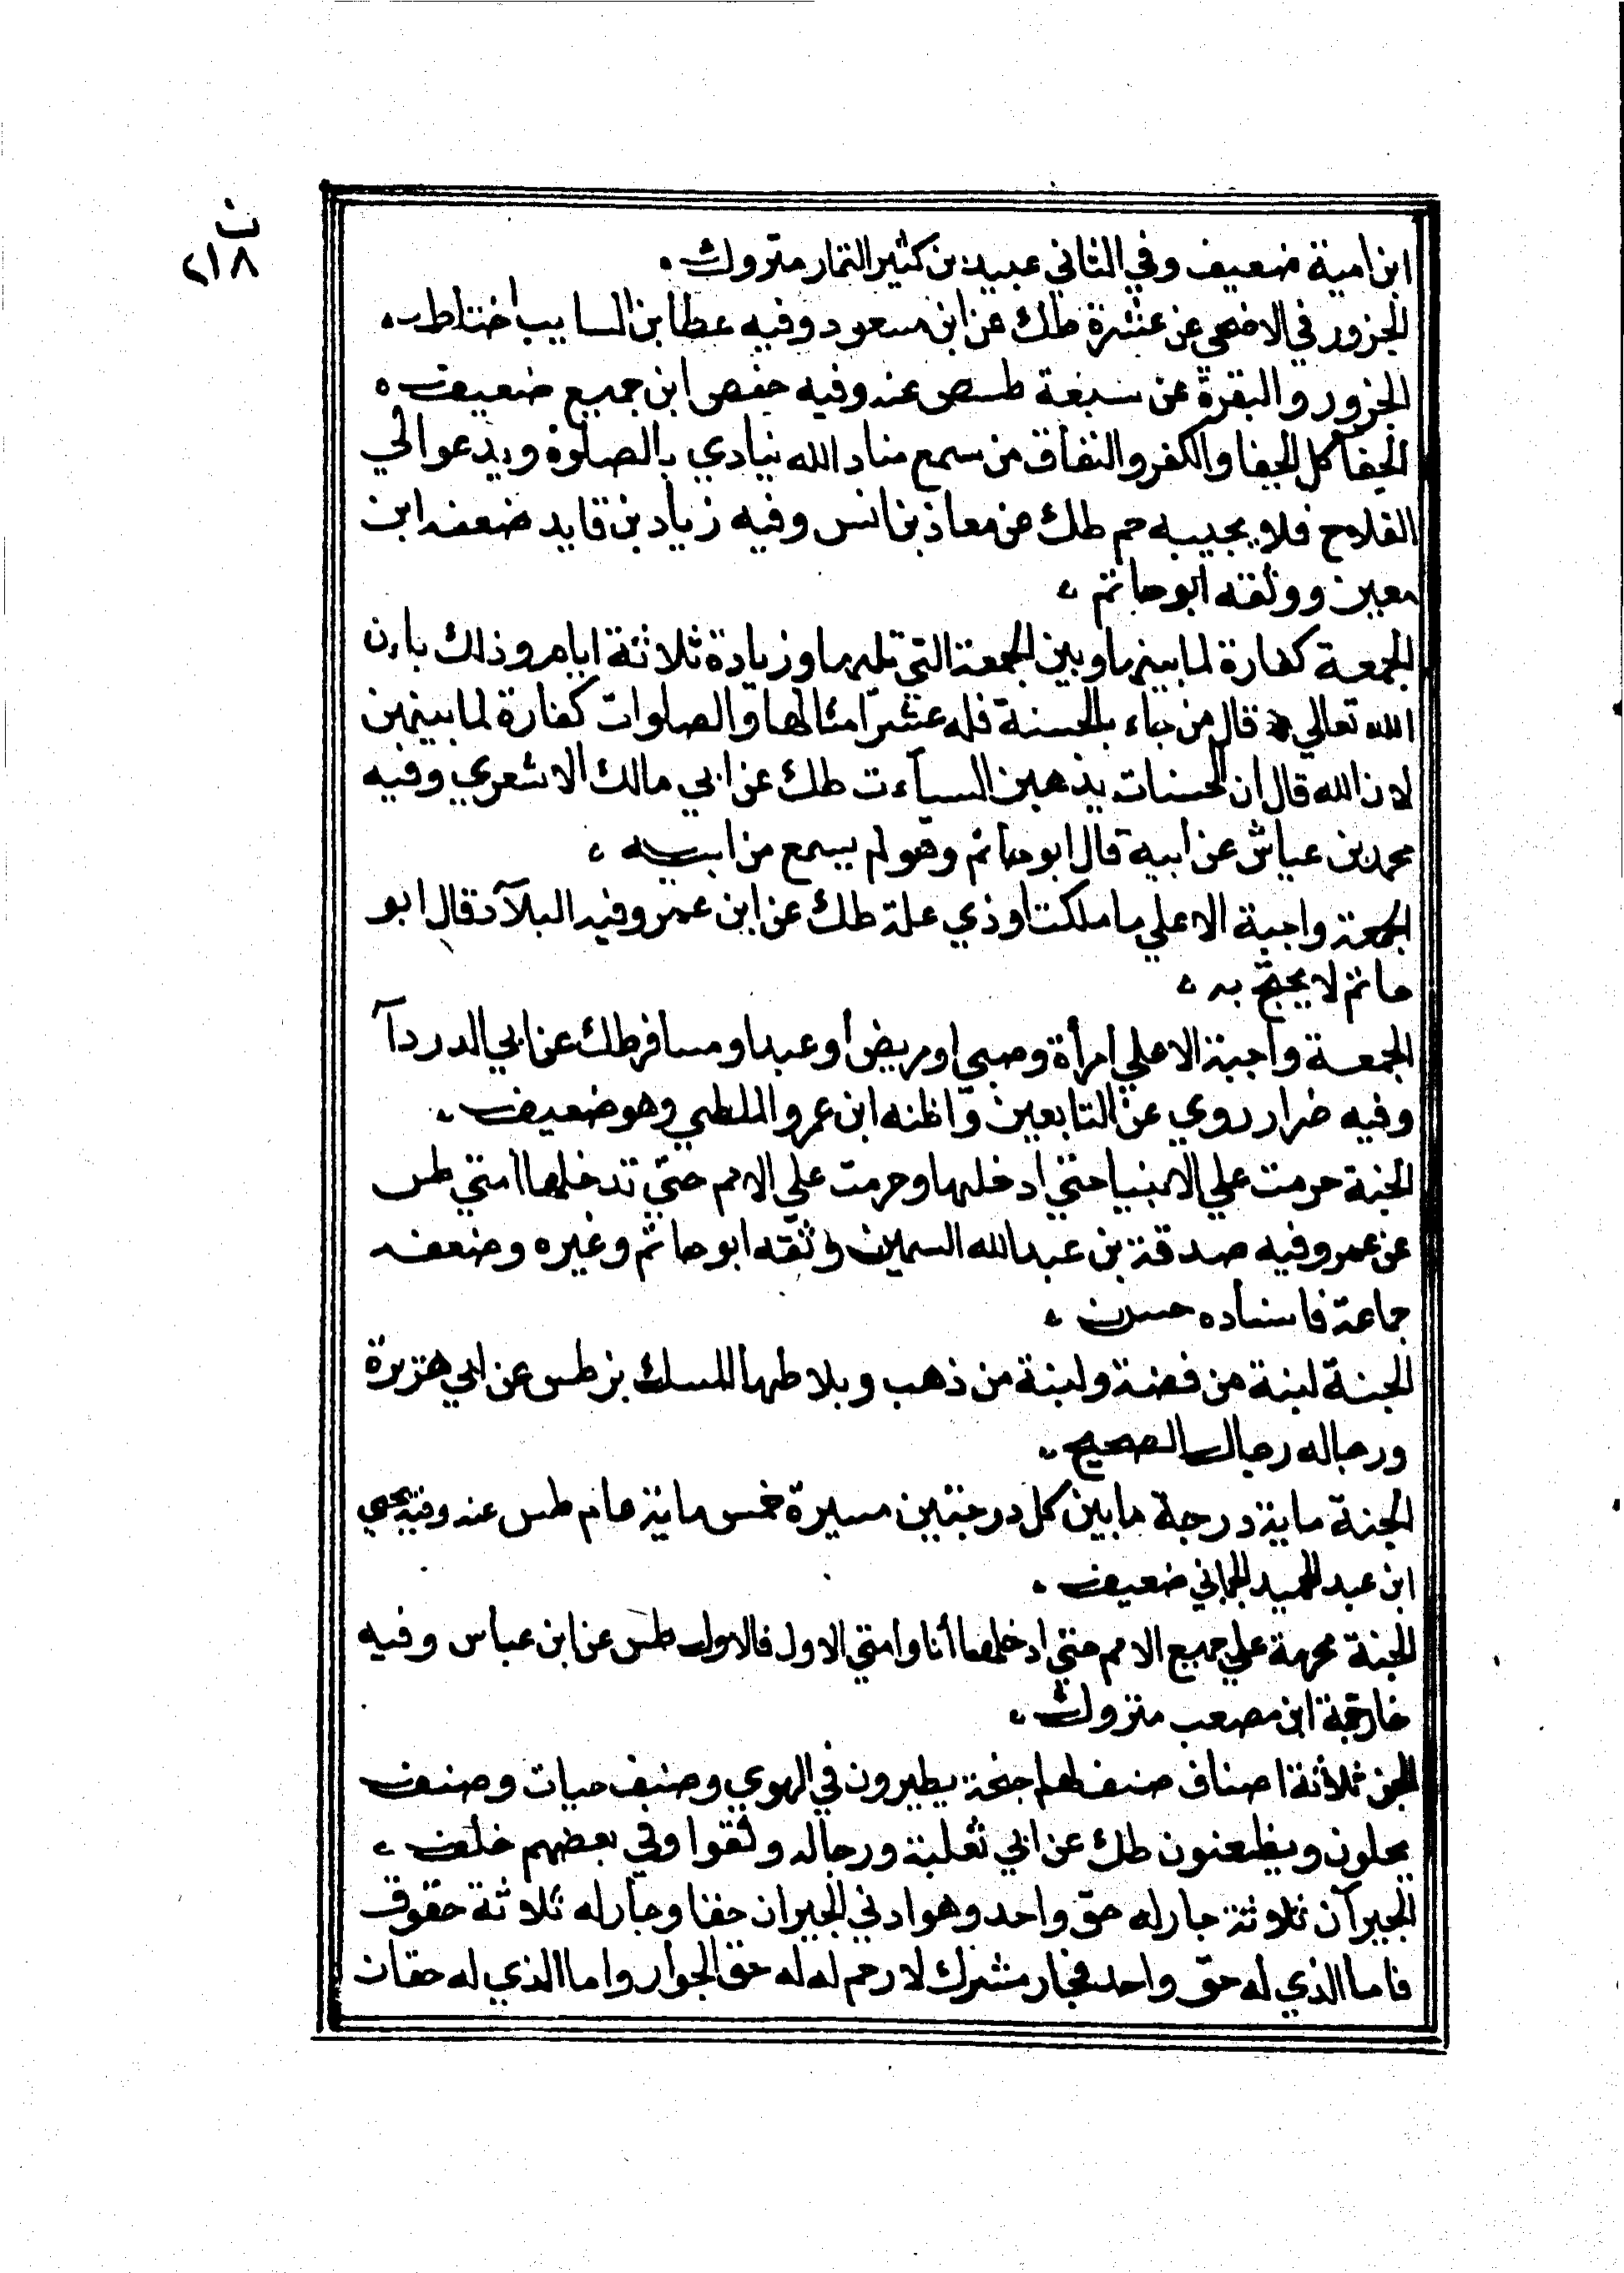 ت
٢١٨
ابن امية ضعيف وفي الثاني عبيد بن كثير التمار متروك
الجزور في الاضحي عن عشرة طك عن ابن مسعود وفيه عطا بن السايب اختلط
الجزور والبقرة عن سبعة طسص عنه وفيه حفص ابن جميع ضعيف
الجفا كل الجفا والكفر والنفاق من سمع مناد الله ينادي بالصلوة ويدعوالي
الفلاح فلا يجيبه حم طك عن معاذ بن انس وفيه زياد بن قايد ضعفه ابن
معين ووثقه ابو حاتم
الجمعة كفارة لما بينها وبين الجمعة التي تليها وزيادة ثلاثة ايام وذلك بان
الله تعالي قال من جاء بالحسنة فله عشر امثالها والصلوات كفارة لما بينهن
لان الله قال ان الحسنات يذهبن السيآت طك عن ابي مالك الاشعري وفيه
محمد بن عياش عن ابيه قال ابو حاتم وهو لم يسمع من ابيه
الجمعة واجبة الا علي ما ملكت او ذي علة طك عن ابن عمر وفيه البلآد قال ابو
حاتم لا يحتج به
الجمعة واجبة الا علي امرأة وصبي او مريض أو عبد او مسافر طك عن ابي الدردآ
وفيه ضرار روي عن التابعين واظنه ابن عمرو الملطي وهو ضعيف
الجنة حرمت علي الانبيا حتي ادخلها وحرمت علي الامم حتي تدخلها امتي طس
عن عمر وفيه صدقة بن عبد الله السمين وثقه ابو حاتم وغيره وضعفه
جماعة فاسناده حسن
الجنة لبنة من فضة ولبنة من ذهب وبلاطها المسك بز طس عن ابي هريرة
ورجاله رجال الصحيح
الجنة ماية درجة ما بين كل درجتين مسيرة خمس ماية عام طس عنه وفيه يحي
ابن عبد الحميد الحماني ضعيف
الجنة محرمة علي جميع الامم حتي ادخلها أنا وامتي الاول فالاول طس عن ابن عباس وفيه
خارجة ابن مصعب متروك
الجن ثلاثة اصناف صنف لهم اجنحة يطيرون في الهوي وصنف حيات وصنف
يحلون ويظعنون طك عن ابي ثعلبة ورجاله وثقوا وفي بعضهم خلف
الجيرآن ثلاثة جار له حق واحد وهو ادني الجيران حقا وجار له ثلاثة حقوق
فاما الذي له حق واحد فجار مشرك لا رحم له له حق الجوار واما الذي له حقان